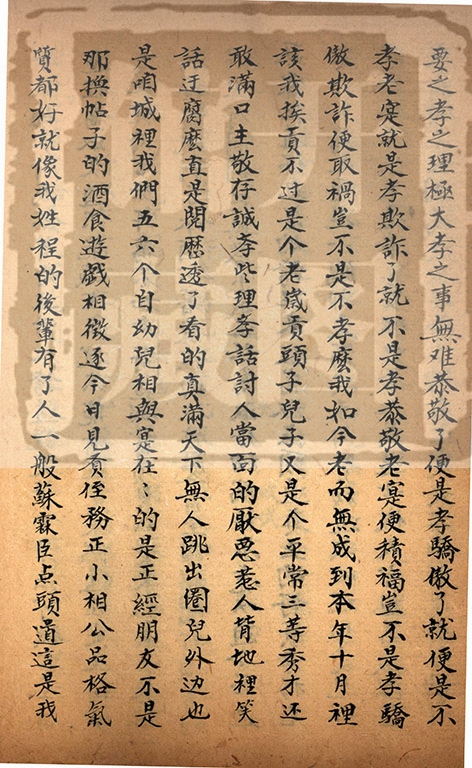 要之孝之理極大孝之事無难恭敬了便是孝驕傲了就便是不
孝老寔就是孝欺詐了就不是孝恭敬老寔便積福豈不是孝驕
傲欺詐便取禍豈不是不孝麽我如今老而無成到本年十月裡
該我挨貢不过是个老歲貢頭子兒子又是个平常三等秀才还
敢滿口主敬存誠孝些理孝話討人當面的厭惡惹人背地裡笑
話迂腐麽直是閱歴透了看的真滿天下無人跳出圈兒外边也
是咱城裡我們五六个自幼兒相與寔在〻的是正經朋友不是
那換帖子的酒食遊戱相徵逐今日見貢侄務正小相公品格氣
質都好就像我姓程的後輩有了人一般蘇霖臣点頭道這是我